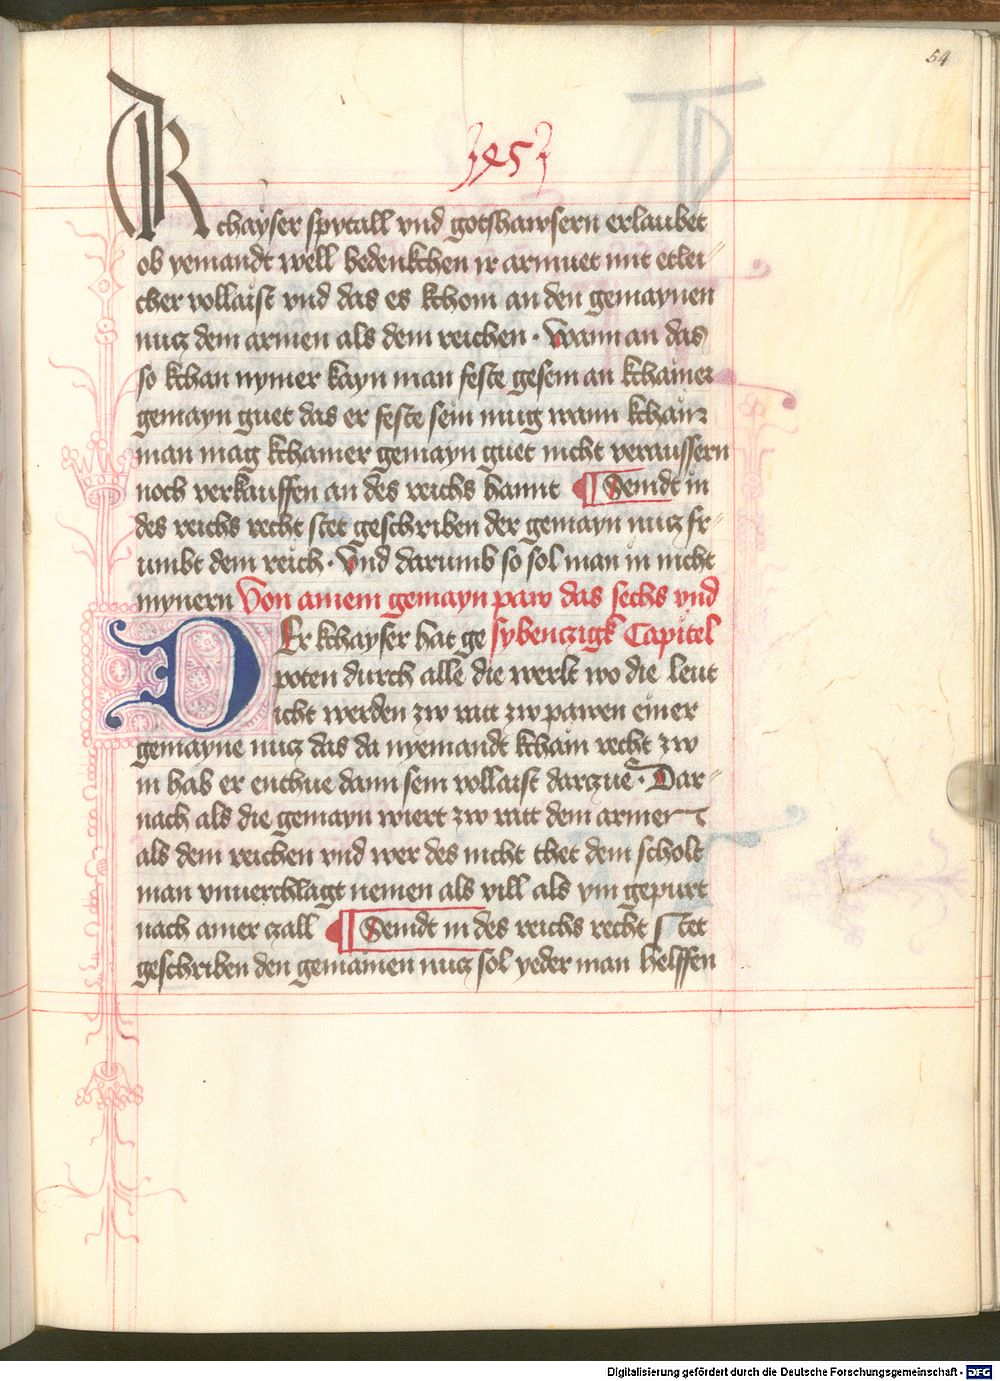 54
45
K chayser spytall vnd gotshawsern erlaubet
ob yemandt well bedenkchen ir armuet mit etlei
cher vollaist vnd das es kchom an den gemaynen
nucz dem armen als dem reichen. Wann an das
so kchan nymer kayn man feste gesein an kchainer
gemayn guet das er feste sein mug wann kchain
man mag kchainer gemayn guet nicht veraussern
noch verkauffen an des reichs hannt Seindt in
des reichs recht stet geschriben der gemayn nucz fr
umbt dem reich. Vnd darumb so sol man in nicht
mynern Von ainem gemayn paw das sechs vnd
DEr kchayser hat ge sybenczigk Capitel
poten durch alle die werlt wo die leut
icht werden zw ratt zw pawen einer
gemayne nucz das da nyemandt kchain recht zw
in hab er enthue dann sein vollaist darzue. Dar
nach als die gemayn wiert zw ratt dem armen
als dem reichen vnd wer des nicht thet dem scholt
man vnuerchlagt nemen als vill als ym gepurt
nach ainer czall Seindt in des reichs recht stet
geschriben den gemainen nucz sol yederman helffen
Digitalisierung gefördert durch die Deutsche Forschungsgemeinschaft - DFG